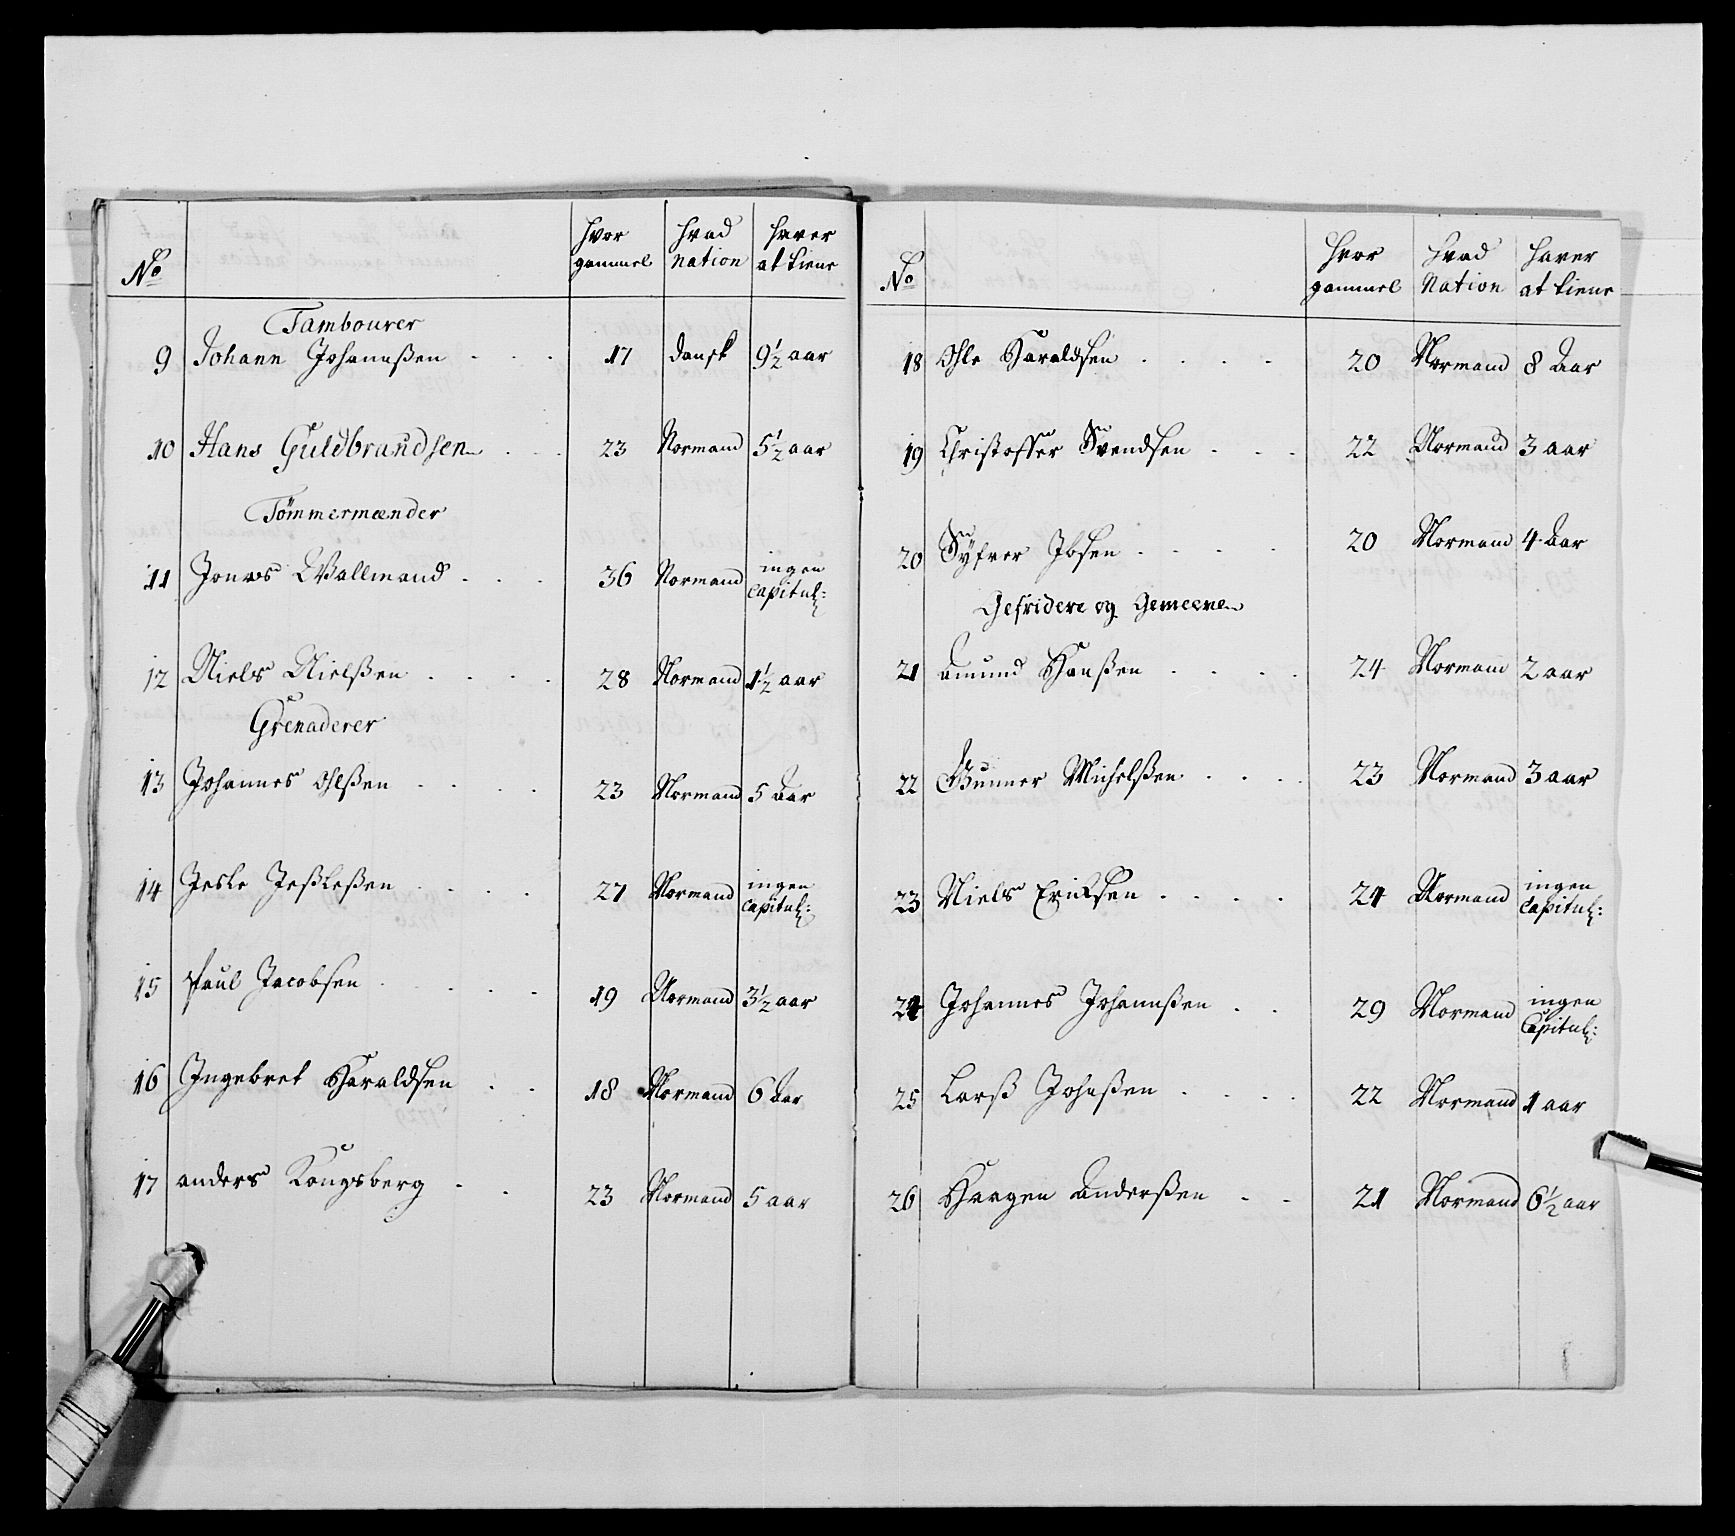 No hvor gammel hvad Nation haver at tiene
Tambourer
9 Johann Johannßen 17 dansk 9½ aar
10 Hans Guldbrandsen 23 Normand 5½ aar
Tömmermænder
11 Jonas Wallmand 36 Normand ingen Capitul:
12 Niels Nielßen 28 Normand 1½ aar
Grenaderer
13 Johannes Ohlßen 23 Normand 5 Aar
14 Jesle Jeßleßen 27 Normand ingen Capitul:
15 Paul Jacobsen 19 Normand 3½ aar
16 Ingebret Haraldsen 18 Normand 6 Aar
17 anders Kongsberg 23 Normand 5 aar
No hvor gammel hvad Nation haver at tiene
18 Ohle Haraldsen 20 Normand 8 Aar
19 Christoffer Svendsen 22 Normand 3 aar
20 Syfver Ibsen 20 Normand 4 Aar
Gefridere og Gemeene
21 Amund Hanßen 24 Normand 2 aar
22 Gunner Michelßen 23 Normand 3 aar
23 Niels Eriksen 24 Normand ingen Capitul:
24 Johannes Johannßen 29 Normand ingen Capitul:
25 Larß Johnßen 22 Normand 1 aar
26 Haagen Anderßen 21 Normand 6½ aar